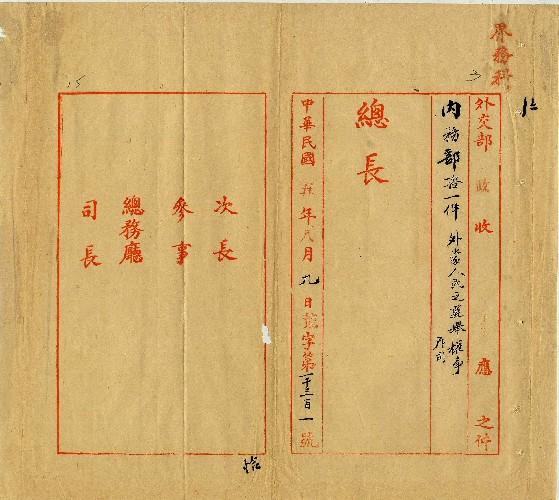 界務科
外交部 政 收 應 之件
內務部咨一件 外蒙人民之選舉權事
總長
中華民國 五年八月九日 字第一千三百一號
次長
參事
總務廳
司長